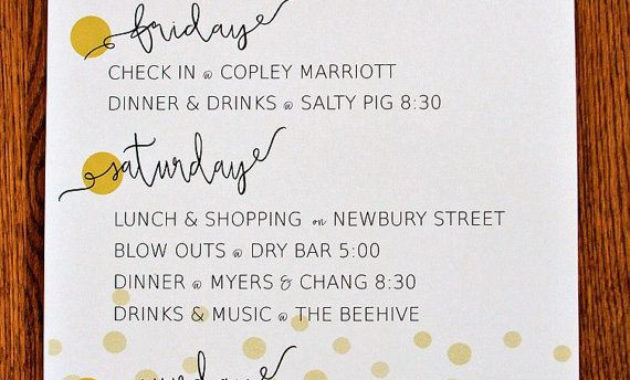 friday
CHECK IN @ COPLEY MARRIOTT
DINNER & DRINKS @ SALTY PIG 8:30
saturday
LUNCH & SHOPPING on NEWBURY STREET
BLOW OUTS @ DRY BAR 5:00
DINNER @ MYERS & CHANG 8:30
DRINKS & MUSIC @ THE BEEHIVE